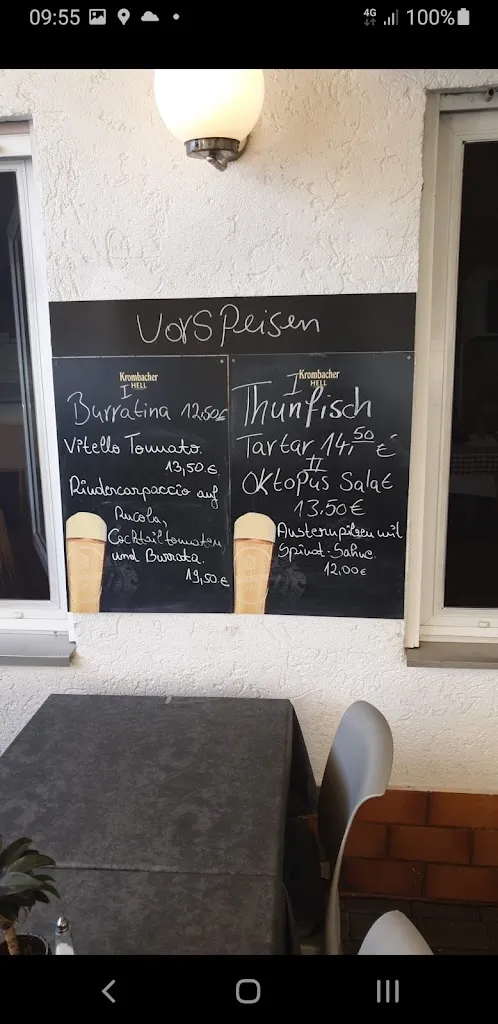 09:55
4G
100%
Vorspeisen
Krombacher
HELL
I
Burratina 12,50€
Vitello Tonnato.
13,50€
Rindercarpaccio auf
Rucola,
Cocktailtomaten
und Burrata.
19,50€
Krombacher
HELL
I
Thunfisch
Tartar 14,50 €
II
Oktopus Salat
13.50€
Austernpilzen mit
Spinat-Sahne.
12,00€